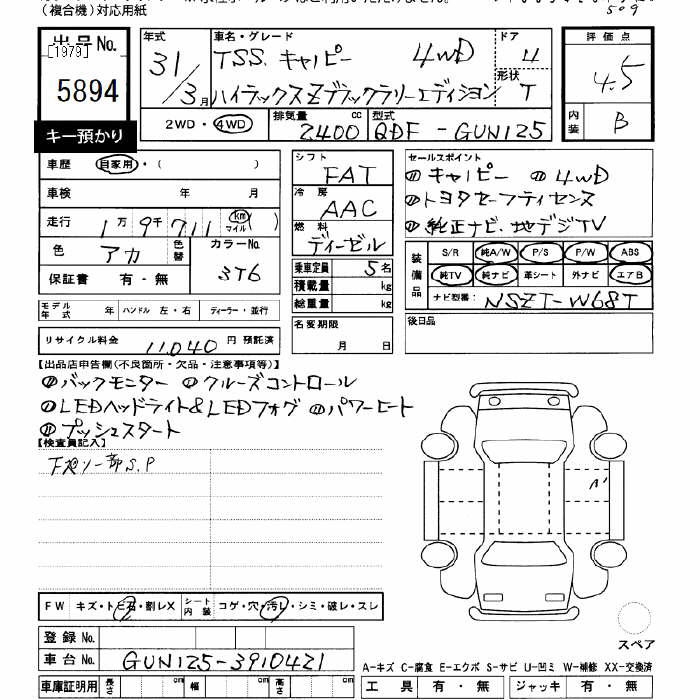 (複合機)対応用紙
509
出品No.
[1979]
5894
キー預かり
年式 31/3月
車名・グレード TSS キャノピー 4WD
ハイラックスZブラックラリーエディション
ドア 4
形状 T
2WD・4WD 排気量 2400 cc 型式 QDF-GUN125
評価点 4.5
内装 B
車歴 自家用・( )
車検 年 月
走行 1万9千711 km マイル( )
色 アカ 色替 カラーNo. 3T6
保証書 有・無
モデル年式 年 ハンドル 左・右 ディーラー・並行
リサイクル料金 11,040 円 預託済
シフト FAT
冷房 AAC
燃料 ディーゼル
乗車定員 5名
積載量 kg
総重量 kg
名変期限 月 日
セールスポイント
キャノピー 4WD
トヨタセーフティセンス
純正ナビ・地デジTV
装備品 S/R 純A/W P/S P/W ABS
純TV 純ナビ 革シート 外ナビ エアB
ナビ型番: NSZT-W68T
後日品
【出品店申告欄(不良箇所・欠品・注意事項等)】
バックモニター クルーズコントロール
LEDヘッドライト&LEDフォグ パワーヒート
プッシュスタート
【検査員記入】
下廻り一部S.P
A1
FW キズ・トビ石・割レX シート内装 コゲ・穴・汚レ・シミ・破レ・スレ
登録No.
車台No. GUN125-3910421
車庫証明用 長さ cm 幅 cm 高さ cm
スペア
A-キズ C-腐食 E-エクボ S-サビ U-凹ミ W-補修 XX-交換済
工具 有・無 ジャッキ 有・無